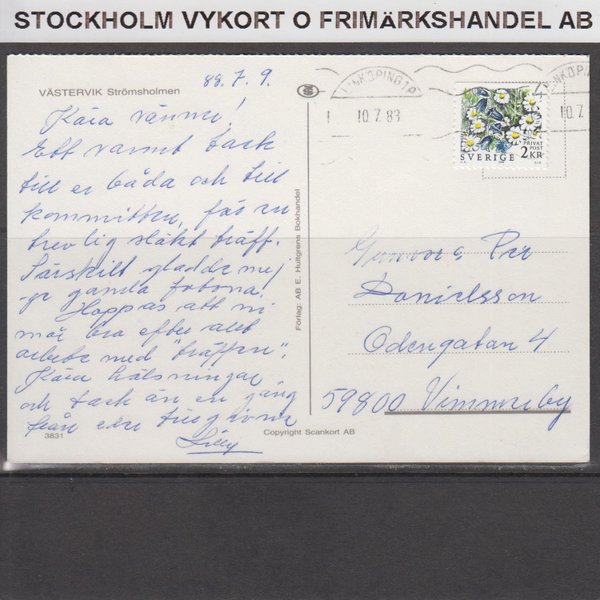 STOCKHOLM VYKORT O FRIMÄRKSHANDEL AB
VÄSTERVIK Strömsholmen
88.7.9.
Kära vänner!
Ett varmt tack
till er båda och till
kommittén, för en
trevlig släkt träff.
Särskilt gladde mej
gamla fotona!
Hoppas att ni
mår bra efter allt
arbete med "träffen".
Kära hälsningar
och tack än en gång
från
Lilly
3831
Copyright Scankort AB
Förlag: AB E. Hultgrens Bokhandel
LINKÖPING
10.7.88
10.7
PRIVAT
POST
SVERIGE 2KR
Gunnar o Per
Danielsson
Odengatan 4
59800 Vimmerby